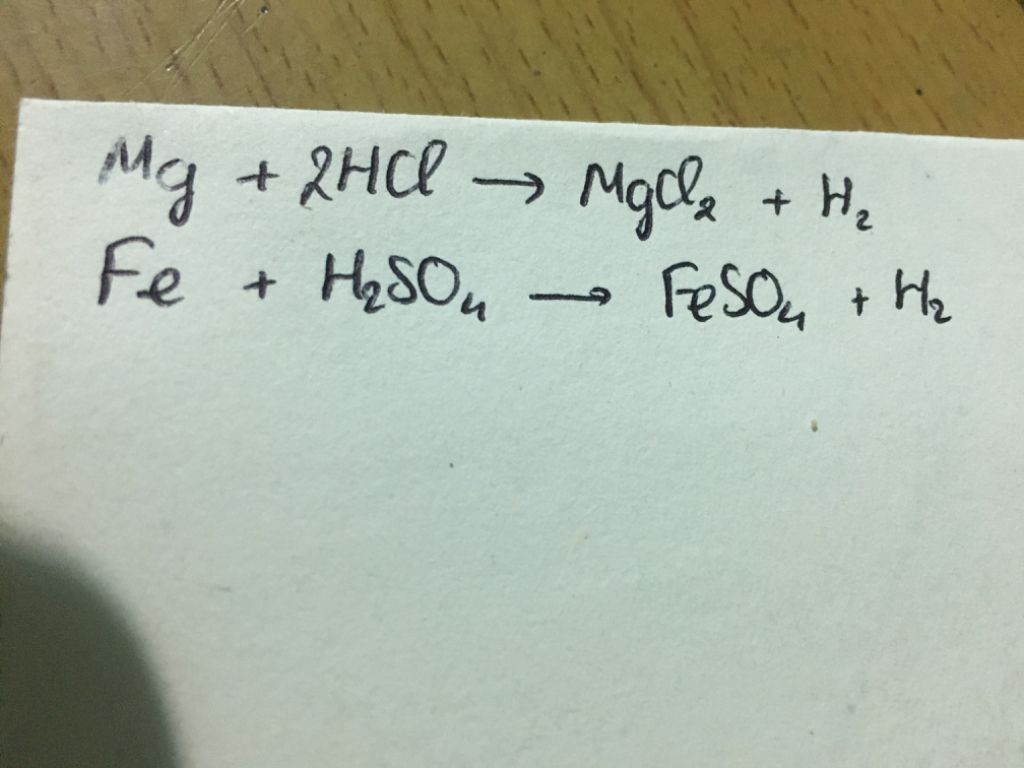 Mg + 2HCl → MgCl₂ + H₂
Fe + H₂SO₄ → FeSO₄ + H₂